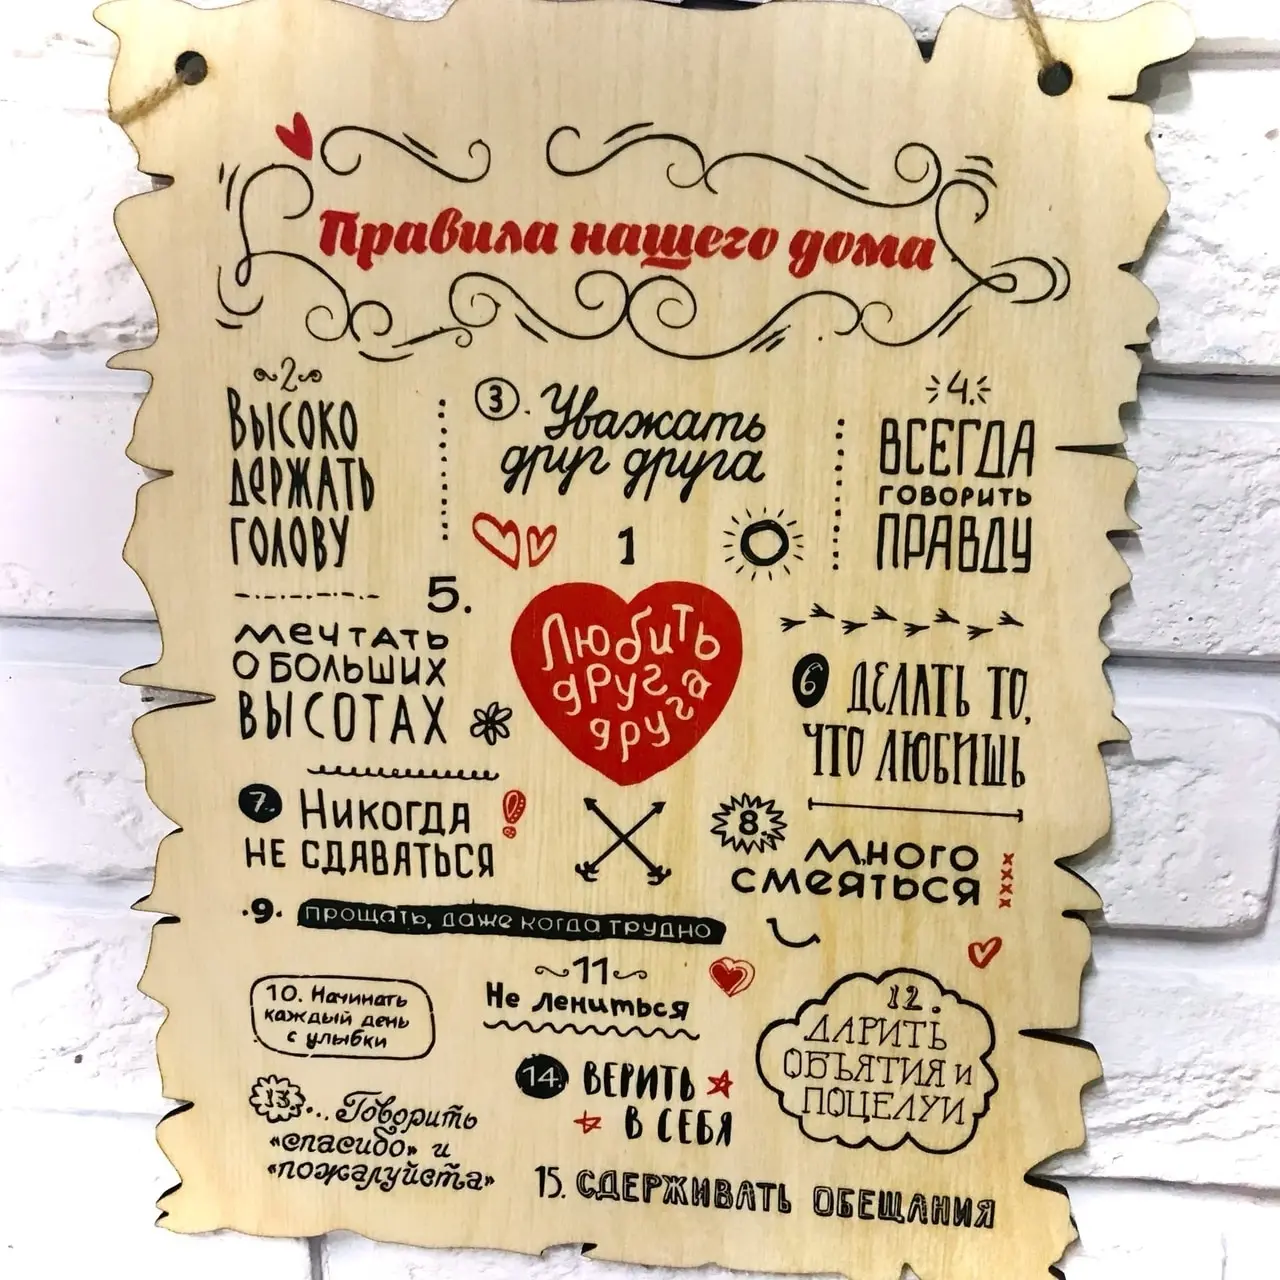 Правила нашего дома
2
ВЫСОКО
ДЕРЖАТЬ
ГОЛОВУ
3. Уважать
друг друга
4.
ВСЕГДА
ГОВОРИТЬ
ПРАВДУ
1
Любить
друг
друга
5.
МЕЧТАТЬ
О БОЛЬШИХ
ВЫСОТАХ
6 ДЕЛАТЬ ТО,
ЧТО ЛЮБИШЬ
7. НИКОГДА
НЕ СДАВАТЬСЯ
8. МНОГО
СМЕЯТЬСЯ
·9· ПРОЩАТЬ, ДАЖЕ КОГДА ТРУДНО
10. Начинать
каждый день
с улыбки
11
Не лениться
12.
ДАРИТЬ
ОБЪЯТИЯ И
ПОЦЕЛУИ
13... Говорить
«спасибо» и
«пожалуйста»
14. ВЕРИТЬ
В СЕБЯ
15. СДЕРЖИВАТЬ ОБЕЩАНИЯ